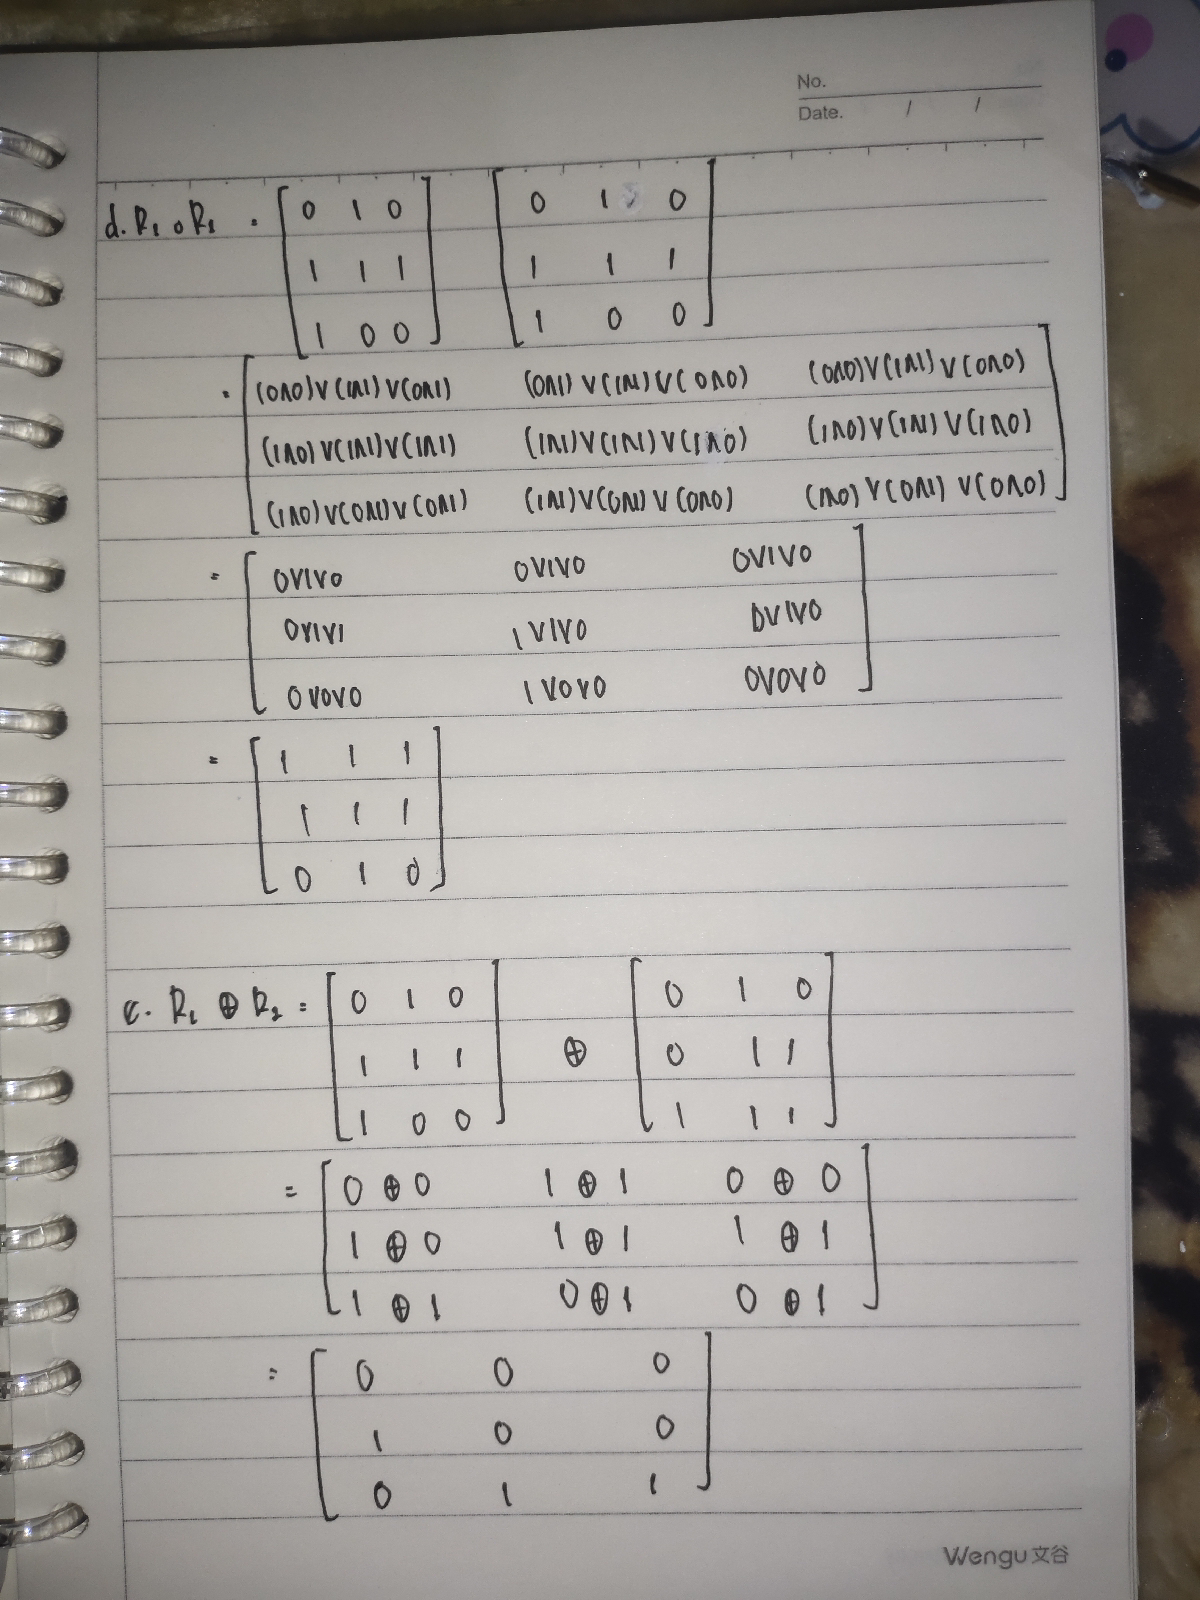 No.
Date. / /
d. R₁ o R₁ = [0 1 0] [0 1 0]
[1 1 1] [1 1 1]
[1 0 0] [1 0 0]
= [(0∧0)∨(1∧1)∨(0∧1) (0∧1)∨(1∧1)∨(0∧0) (0∧0)∨(1∧1)∨(0∧0)]
[(1∧0)∨(1∧1)∨(1∧1) (1∧1)∨(1∧1)∨(1∧0) (1∧0)∨(1∧1)∨(1∧0)]
[(1∧0)∨(0∧1)∨(0∧1) (1∧1)∨(0∧1)∨(0∧0) (1∧0)∨(0∧1)∨(0∧0)]
= [0∨1∨0 0∨1∨0 0∨1∨0]
[0∨1∨1 1∨1∨0 0∨1∨0]
[0∨0∨0 1∨0∨0 0∨0∨0]
= [1 1 1]
[1 1 1]
[0 1 0]
e. R₁ ⊕ R₂ = [0 1 0] ⊕ [0 1 0]
[1 1 1] [0 1 1]
[1 0 0] [1 1 1]
= [0 ⊕ 0 1 ⊕ 1 0 ⊕ 0]
[1 ⊕ 0 1 ⊕ 1 1 ⊕ 1]
[1 ⊕ 1 0 ⊕ 1 0 ⊕ 1]
= [0 0 0]
[1 0 0]
[0 1 1]
Wengu文谷